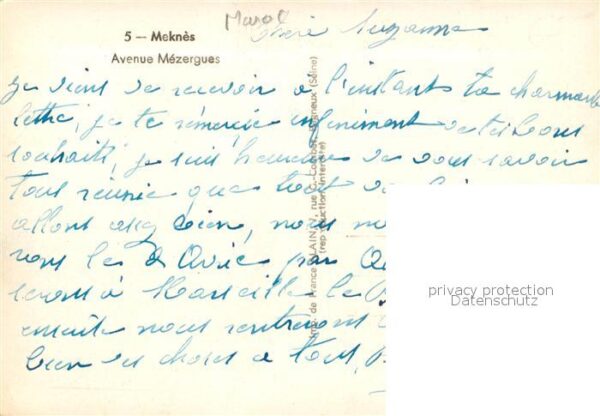 5 — Meknès
Avenue Mézergues
Maroc
Chère Suzanne
je viens de recevoir à l'instants ta charmante
lettre, je te remercie infiniment de tes bons
souhaits, je suis heureuse de vous savoir
tous réunie que tout
allons bien, nous
rons le 2 Avril par
serons à Marseille le
ensuite nous rentrerons
bien des choses à tous,
Imp. de France BLAIN, rue C. Gagneux (Seine)
(reproduction interdite)
privacy protection
Datenschutz